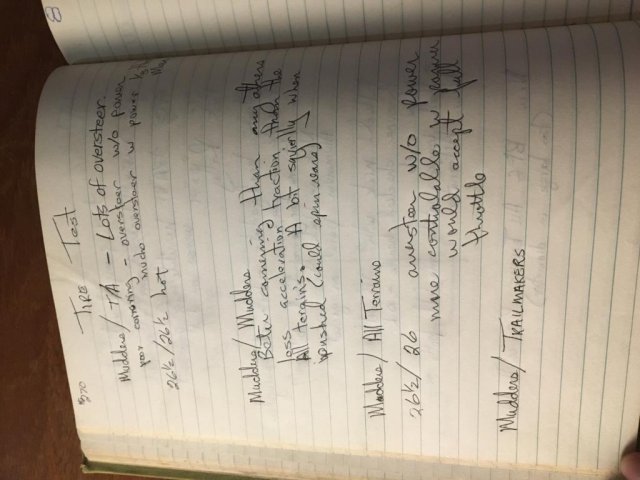 8
Tire Test
Mudders / T/A - Lots of oversteer.
poor cornering - oversteer w/o power
mucho oversteer w power
26½/26½ hot
Mudders/Mudders
Better cornering than any others
less acceleration traction than the
All terrains. A bit squirrlly when
pushed (could spin rears)
Mudders/ All Terrains
26½/26 oversteer w/o power
more controlable w power
would accept full
throttle
Mudders/ TRAILMAKERS